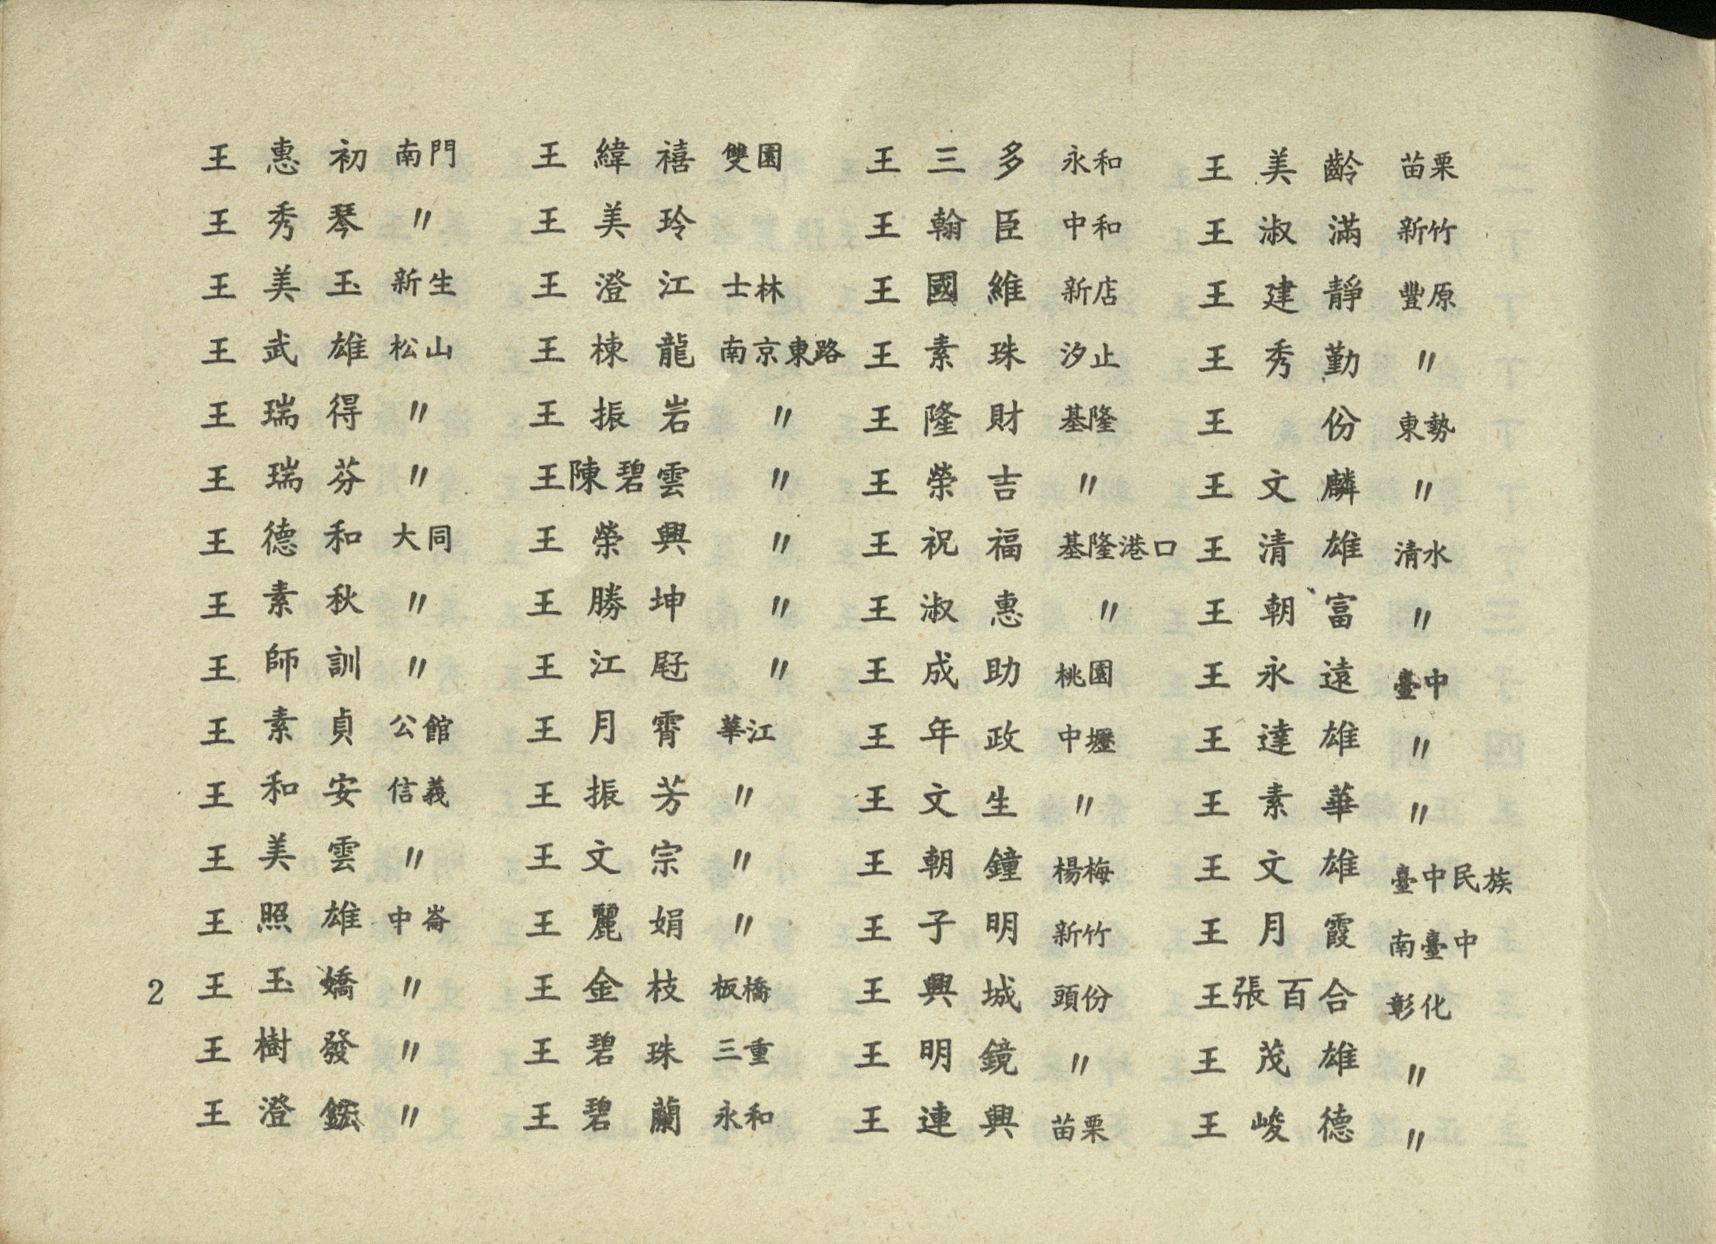 王惠初 南門
王秀琴 〃
王美玉 新生
王武雄 松山
王瑞得 〃
王瑞芬 〃
王德和 大同
王素秋 〃
王師訓 〃
王素貞 公館
王和安 信義
王美雲 〃
王照雄 中崙
王玉嬌 〃
王樹發 〃
王澄鋐 〃
王緯禧 雙園
王美玲
王澄江 士林
王棟龍 南京東路
王振岩 〃
王陳碧雲 〃
王榮興 〃
王勝坤 〃
王江 〃
王月霄 華江
王振芳 〃
王文宗 〃
王麗娟 〃
王金枝 板橋
王碧珠 三重
王碧蘭 永和
王三多 永和
王翰臣 中和
王國維 新店
王素珠 汐止
王隆財 基隆
王榮吉 〃
王祝福 基隆港口
王淑惠 〃
王成助 桃園
王年政 中壢
王文生 〃
王朝鐘 楊梅
王子明 新竹
王興城 頭份
王明鏡 〃
王連興 苗栗
王美齡 苗栗
王淑滿 新竹
王建靜 豐原
王秀勤 〃
王份 東勢
王文麟 〃
王清雄 清水
王朝富 〃
王永遠 臺中
王達雄 〃
王素華 〃
王文雄 臺中民族
王月霞 南臺中
王張百合 彰化
王茂雄 〃
王峻德 〃
2